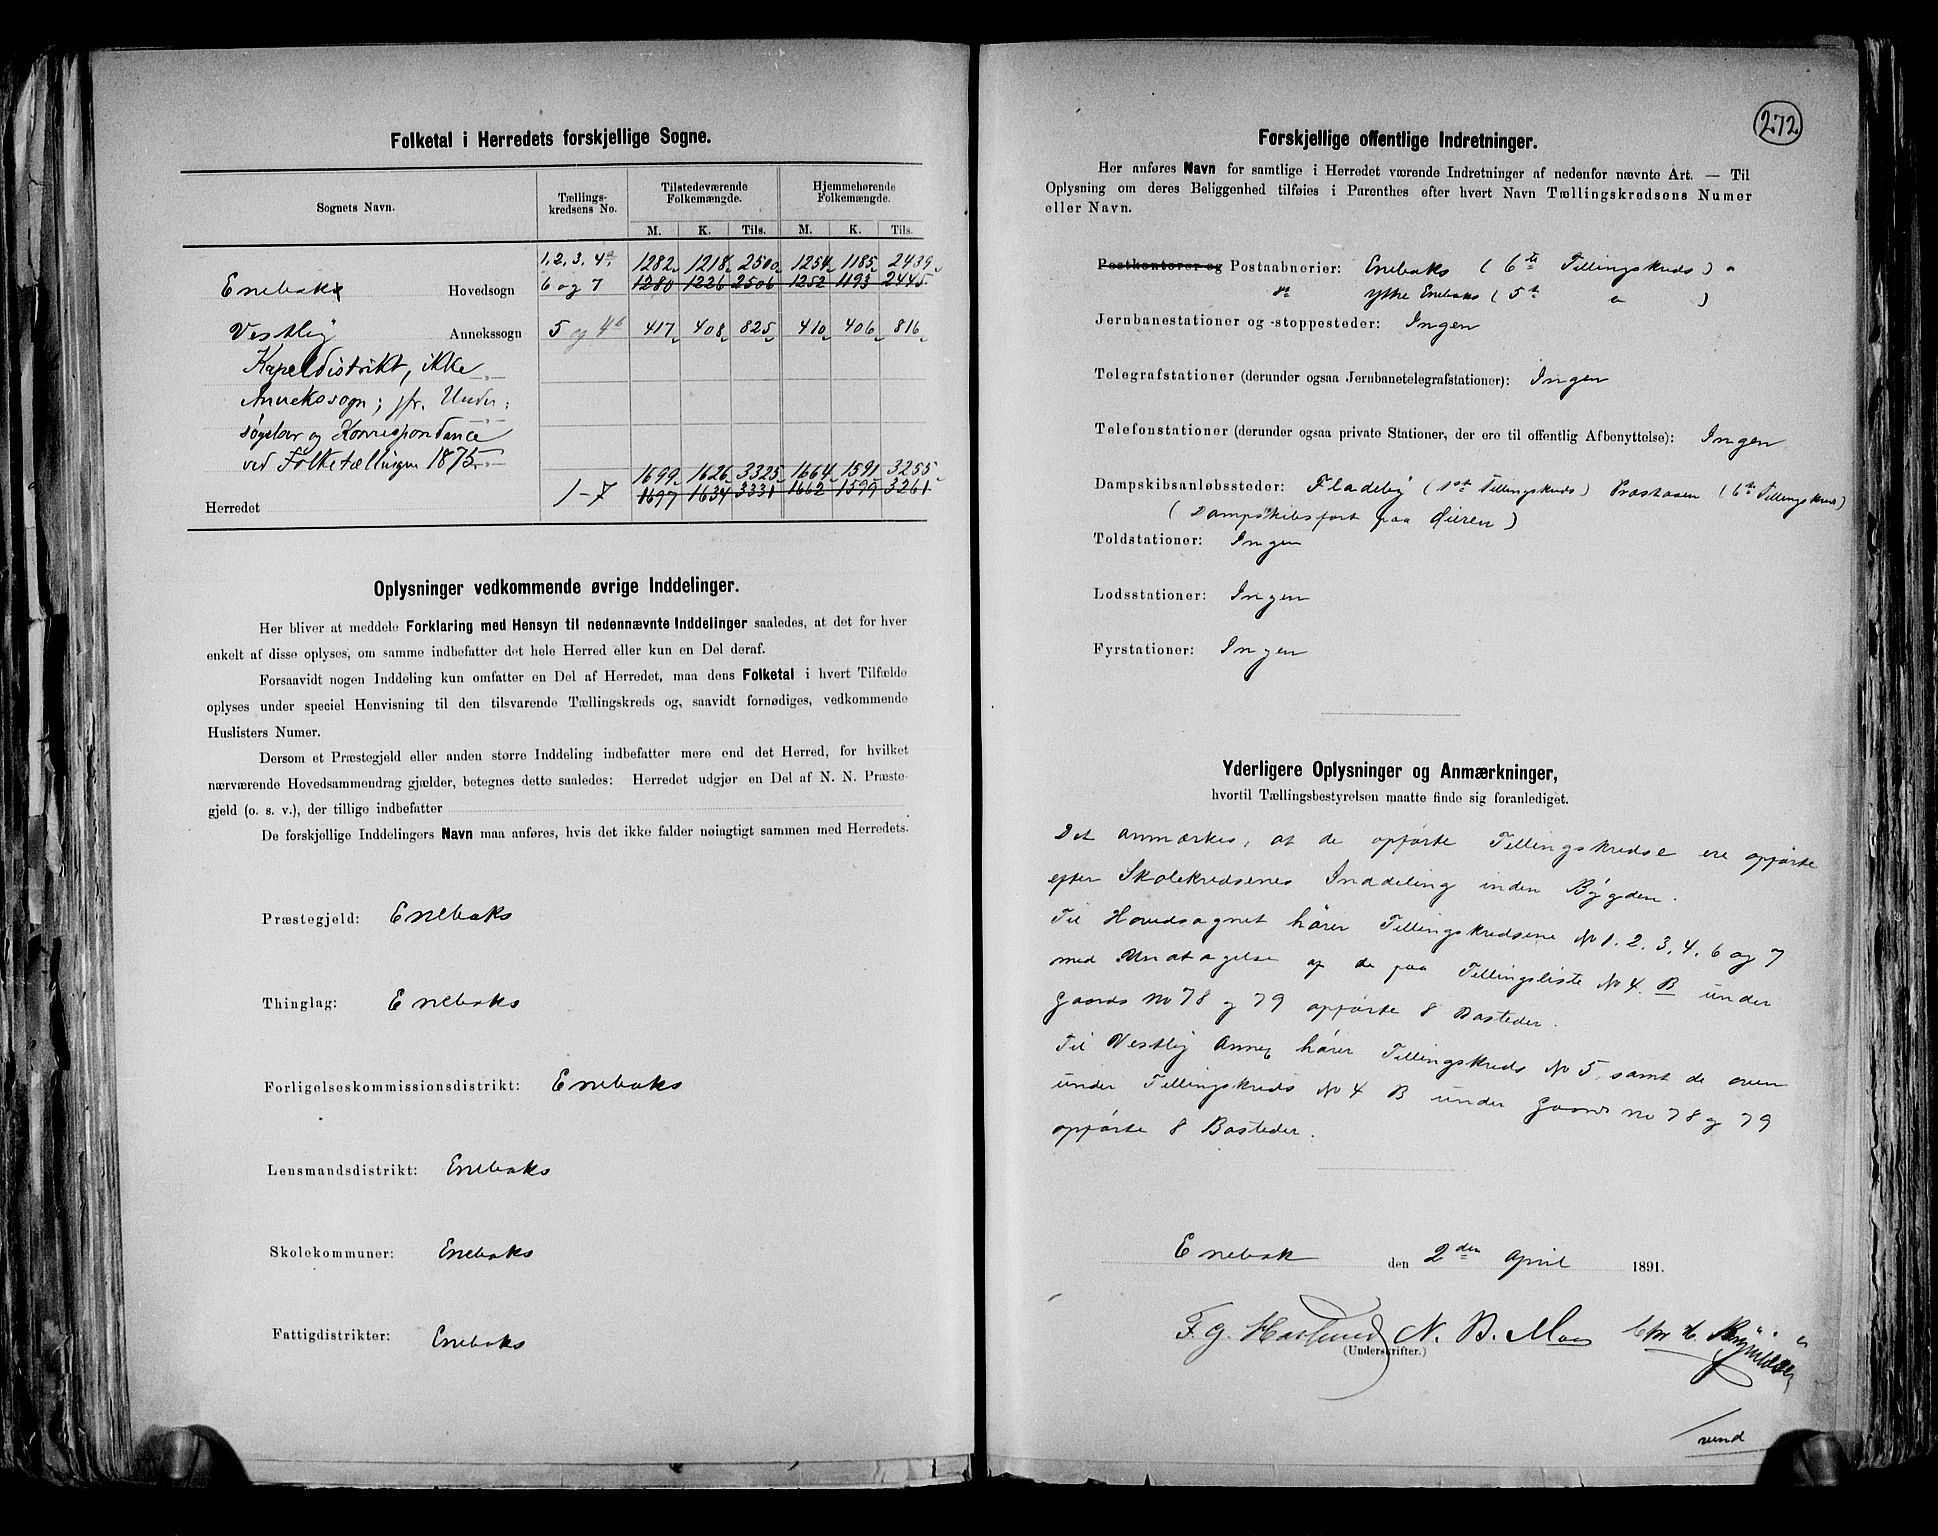 Folketal i Herredets forskjellige Sogne.
Sognets Navn.
Tællings-
kredsens No.
Tilstedeværende
Folkemængde.
Hjemmehørende
Folkemængde.
M. K. Tils. M. K. Tils.
1, 2, 3, 4a, 1282 1218 2500 1254 1185 2439
Enebak Hovedsogn 6 og 7 1280 1226 2506 1252 1193 2445
Vestby Annekssogn 5 og 4b 417 408 825 410 406 816
Kapeldistrikt, ikke
Annekssogn; jfr. Under:
søgelser og Korrespondance
ved Folketællingen 1875.
1699 1626 3325 1664 1591 3255
Herredet 1-7 1697 1634 3331 1662 1599 3261
Oplysninger vedkommende øvrige Inddelinger.
Her bliver at meddele Forklaring med Hensyn til nedennævnte Inddelinger saaledes, at det for hver
enkelt af disse oplyses, om samme indbefatter det hele Herred eller kun en Del deraf.
Forsaavidt nogen Inddeling kun omfatter en Del af Herredet, maa dens Folketal i hvert Tilfælde
oplyses under speciel Henvisning til den tilsvarende Tællingskreds og, saavidt fornødiges, vedkommende
Huslisters Numer.
Dersom et Præstegjeld eller anden større Inddeling indbefatter mere end det Herred, for hvilket
nærværende Hovedsammendrag gjælder, betegnes dette saaledes: Herredet udgjør en Del af N. N. Præste-
gjeld (o. s. v.), der tillige indbefatter
De forskjellige Inddelingers Navn maa anføres, hvis det ikke falder nøiagtigt sammen med Herredets.
Præstegjeld: Enebaks
Thinglag: Enebaks
Forligelseskommissionsdistrikt: Enebaks
Lensmandsdistrikt: Enebaks
Skolekommuner: Enebaks
Fattigdistrikter: Enebaks
272
Forskjellige offentlige Indretninger.
Her anføres Navn for samtlige i Herredet værende Indretninger af nedenfor nævnte Art. — Til
Oplysning om deres Beliggenhed tilføies i Parenthes efter hvert Navn Tællingskredsens Numer
eller Navn.
Postkontorer og Postaabnerier: Enebaks (6te Tellingskreds)
Ytre Enebaks (5te " )
Jernbanestationer og -stoppesteder: Ingen
Telegrafstationer (derunder ogsaa Jernbanetelegrafstationer): Ingen
Telefonstationer (derunder ogsaa private Stationer, der ere til offentlig Afbenyttelse): Ingen
Dampskibsanløbssteder: Fladeby (1ste Tellingskreds) Præstaaen (6te Tellingskreds)
(Dampskibsfart paa Øieren)
Toldstationer: Ingen
Lodsstationer: Ingen
Fyrstationer: Ingen
Yderligere Oplysninger og Anmærkninger,
hvortil Tællingsbestyrelsen maatte finde sig foranlediget.
Det anmærkes, at de opførte Tellingskredse ere opførte
efter Skolekredsenes Inddeling inden Bygden.
Til Hovedsognet hører Tellingskredsene No 1. 2. 3. 4. 6 og 7
med Undtagelse af de paa Tellingsliste No 4. B under
Gaards No 78 og 79 opførte 8 Bosteder.
Til Vestby Annex hører Tellingskreds No 5, samt de oven
under Tellingskreds No 4 B under Gaards No 78 og 79
opførte 8 Bosteder.
Enebak den 2den April 1891.
F. G. Haslund N. B. Moes Chr. H.
(Underskrifter.)
vend